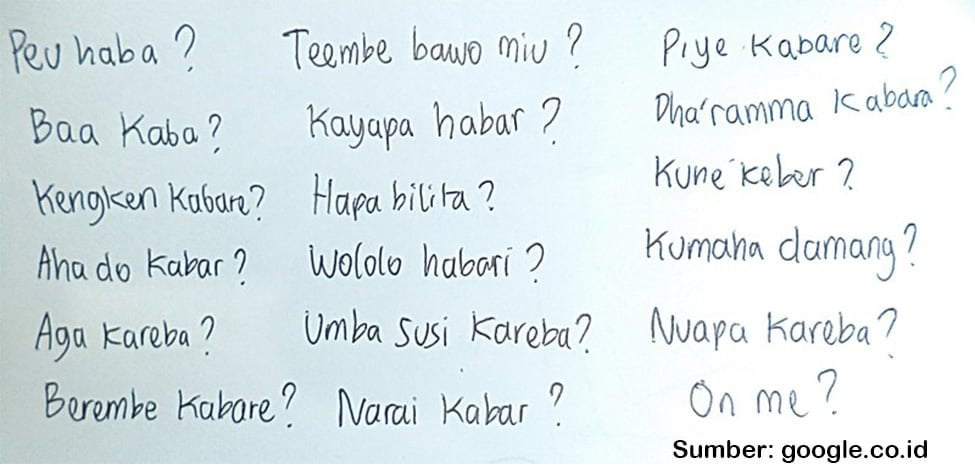 Peu haba?
Baa Kaba?
Kengken Kabare?
Aha do Kabar?
Aga kareba?
Berembe Kabare?
Teembe bawo miu?
Kayapa habar?
Hapa bilita?
Wololo habari?
Umba susi Kareba?
Narai Kabar?
Piye Kabare?
Dha'ramma Kabara?
Kune keber?
Kumaha damang?
Nuapa Kareba?
On me?
Sumber: google.co.id